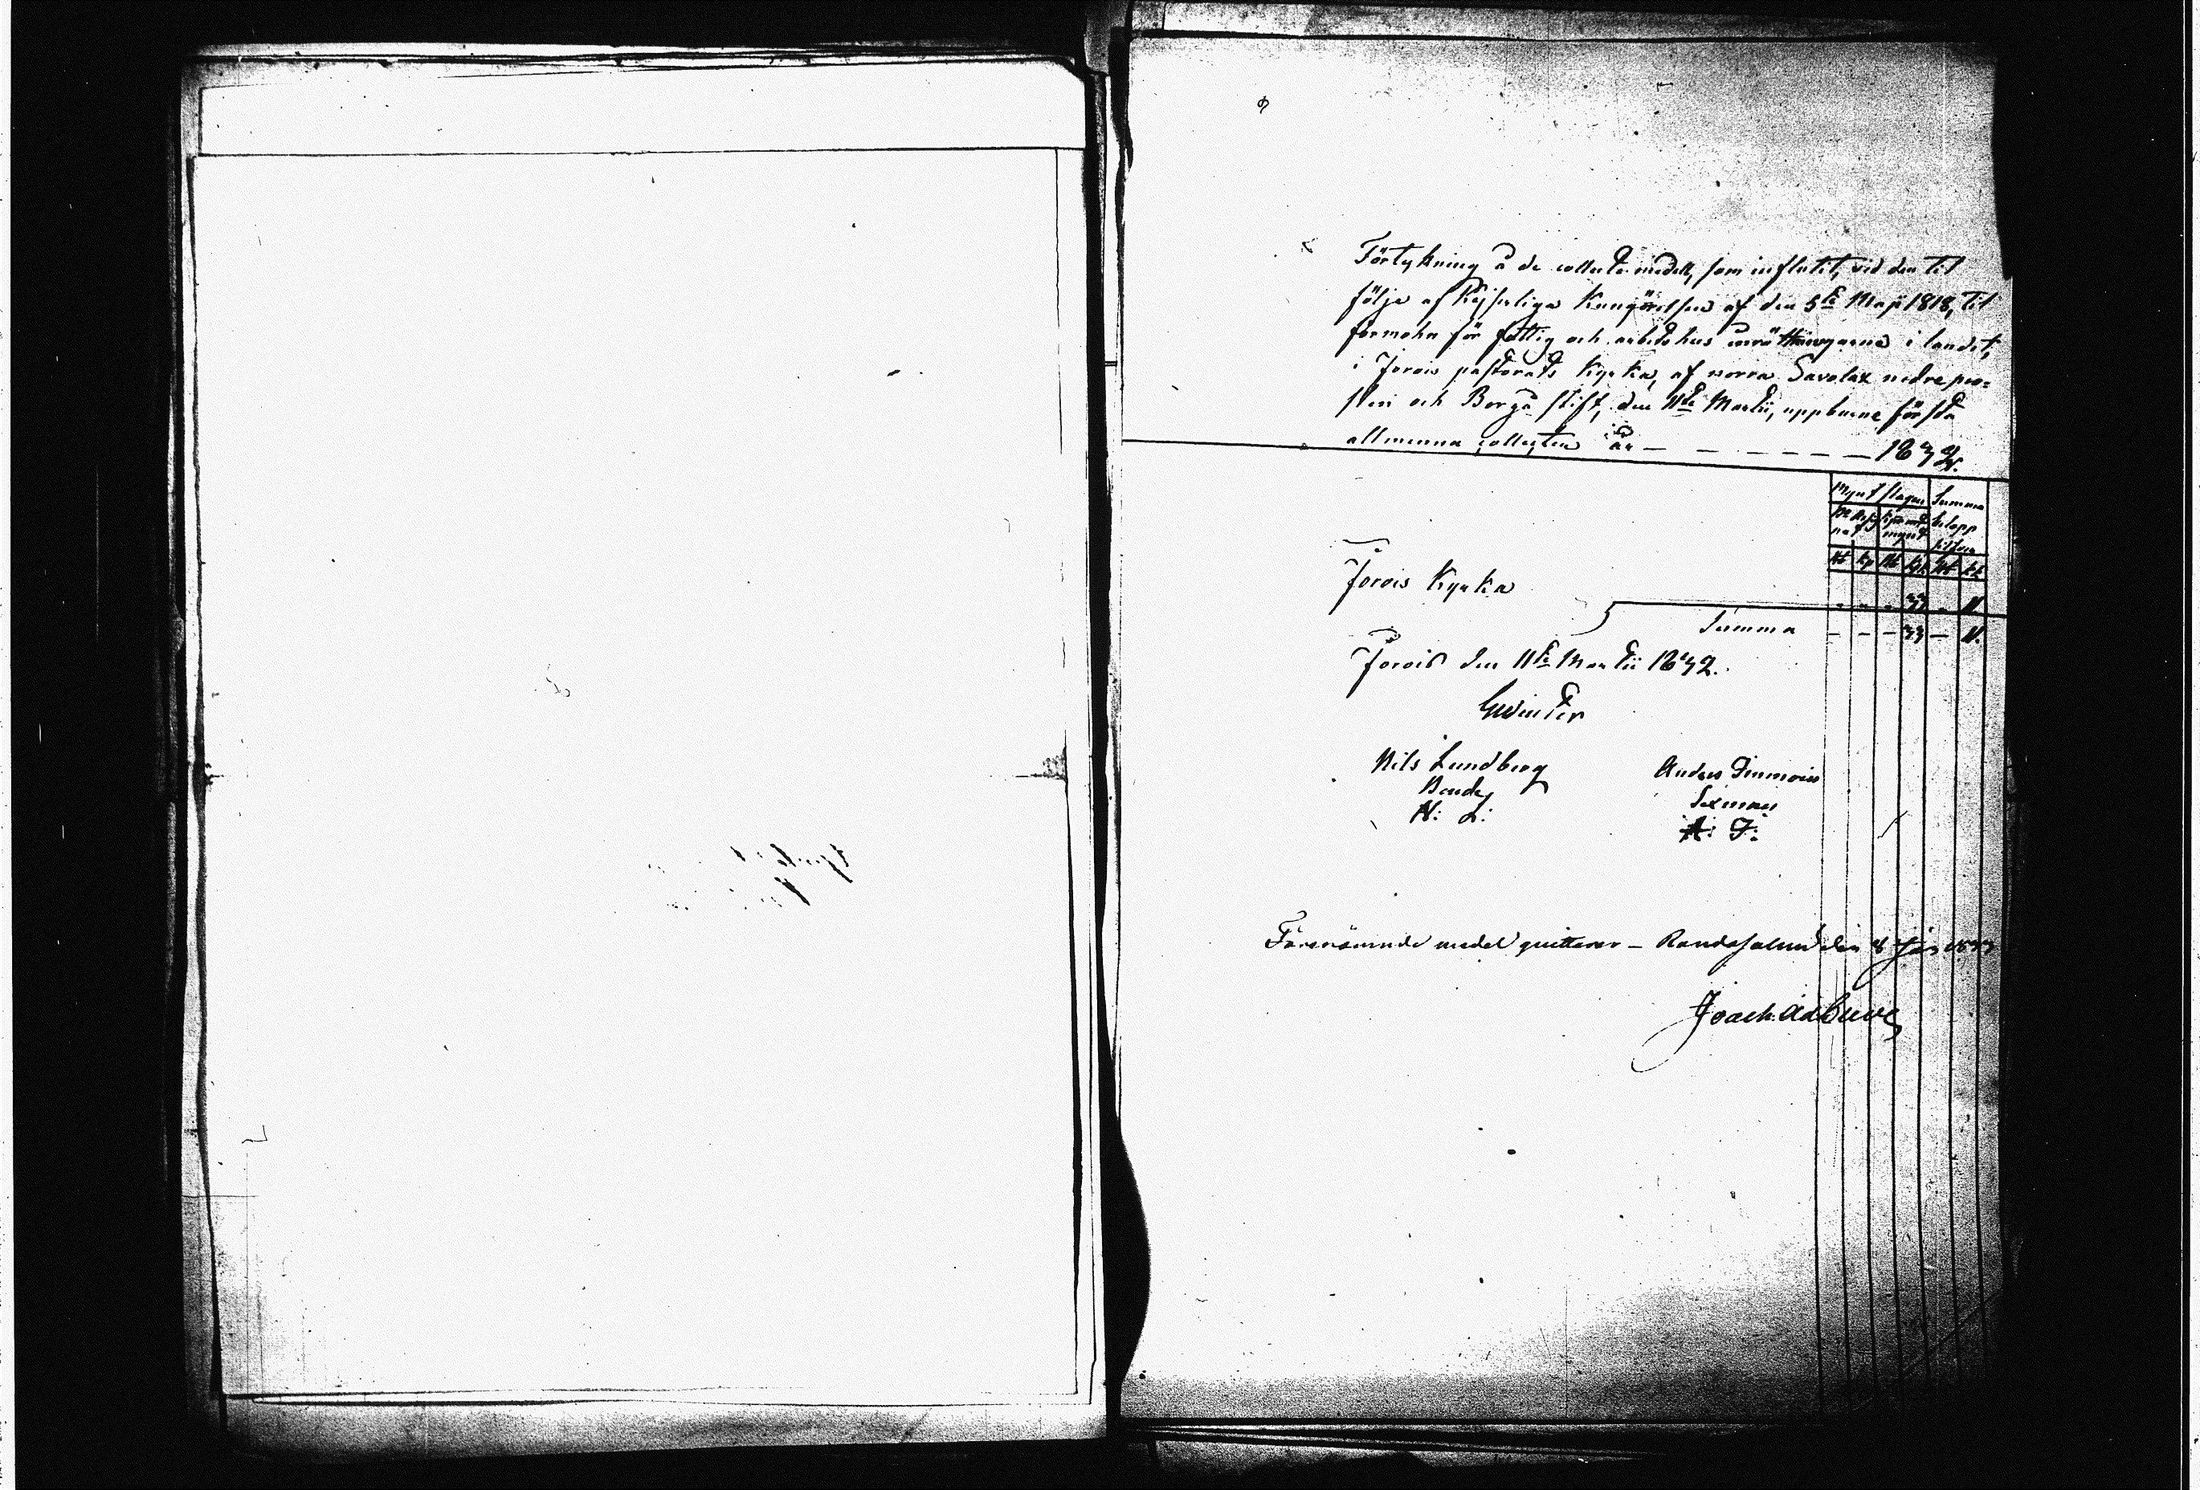 Förtekning å de collecte medel, som influtit, vid den til
följe af Kejserliga Kungörelsen af den 5te Maji 1818, til
förmohn för fattig och arbetshus inrättningarne i landet,
i Jorois pastorats Kyrka, af norra Savolax nedre pro=
steri och Borgå stift, den 11te Martii, uppburne första
allmenna collecten år — — — — — — 1832.
Mynt slagen Summa
belopp
silfver
mynt
Jorois Kyrka
- - - 33 - 11
Summa - - - 33 - 11.
Jorois den 11te Martii 1832.
GWinter
Nils Lundberg Anders Immoin
Bonde Sexman
N: L: A: I:
Förenämnde medel quitterar — Randasalmi den 8 Jan 1833
Joach. Ad Cuve